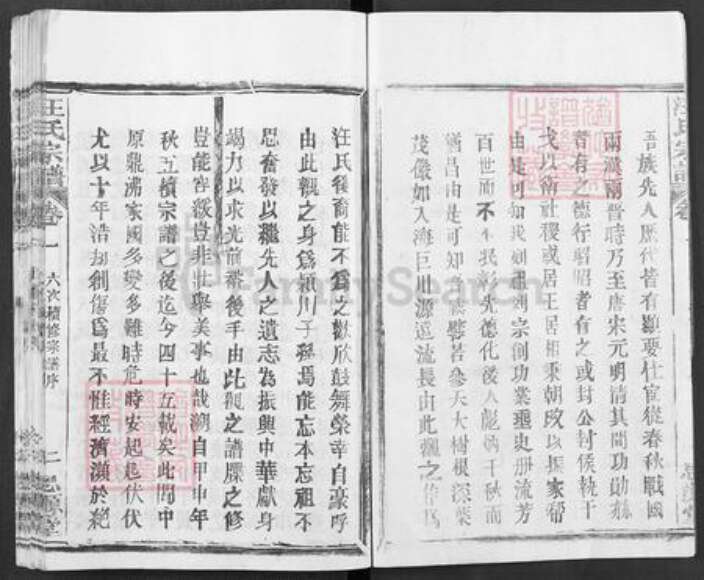 吾族先人歷代皆有顯要仕宦從春秋戰國
兩漢兩晉時乃至唐宋元明清其間功勛
昔有之德行昭昭者有之或封公封侯執干
戈以衛社稷或居王居相秉朝政以振家幫
由是可知我祖祖宗創功業垂史册流芳
百世而不 彰先德化後人彪炳千秋而
昌由是可知 譬若參天大樹根深葉
茂儼如入海巨川源遠流長由此觀之作爲
汪氏後裔能不爲之歡欣鼓舞榮幸自豪呼
由此觀之身爲潁川子孫焉能忘本忘祖不
思奮發以繼先人之遺志為振興中華獻身
竭力以求光前裕後乎由此觀之譜牒之修
豈能容緩豈非壯舉美事也哉溯自甲申年
秋五續宗譜之後迄今四十五載矣此間中
原鼎沸家國多變多難時危時安起起伏伏
尤以十年浩刼創傷爲最不惟經濟瀕於絕
汪氏宗譜 卷一 六次續修宗譜序 二 思源堂
FamilySearch